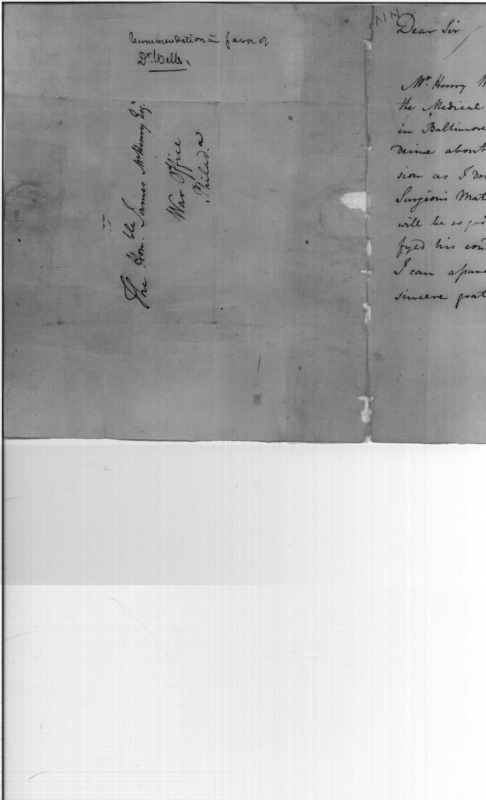 recommendation in favor of
Dr. Wells.
The Hon.ble James McHenry Esq.
War Office
Philada
Dear Sir
Mr. Henry W
the Medical
in Baltimore
about
sion as I do
Surgeons Mat
will be as
fyed his con
I can
sincere grat